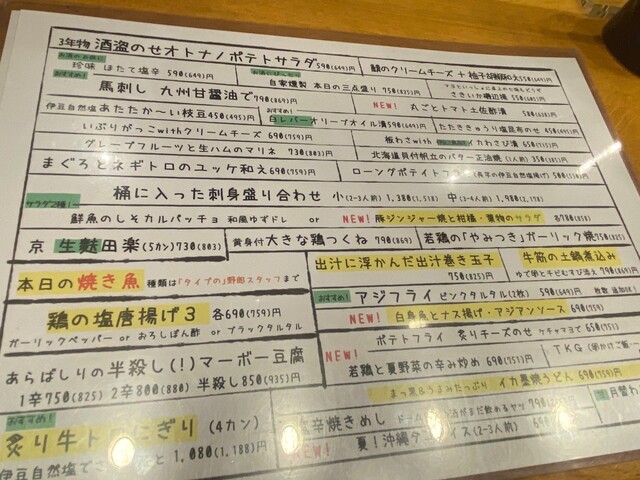 3年物 酒盗のせオトナノポテトサラダ590(649)円
お酒のお供に
珍味 ほたて塩辛 590(649)円
自家燻製 本日の三点盛り 750(825)円
鯖のクリームチーズ + 柚子
おすすめ!
馬刺し 九州甘醤油で790(869)円
NEW! 丸ごとトマト土佐酢漬
伊豆自然塩 あたたか〜い枝豆450(495)円
おすすめ!
白レバーオリーブオイル漬590(649)円
たたききゅうり塩昆布のせ
いぶりがっこwithクリームチーズ 690(759)円
板わさwith イカわさび漬
グレープフルーツと生ハムのマリネ 730(803)円
北海道貝付帆立のバター正油焼(1人前)
まぐろとネギトロのユッケ和え690(759)円
ローングポテイトフライ
サラダ2種!
桶に入った刺身盛り合わせ 小(2-3人前)1,380(1,518)円 中(3-4人前)1,980(2,178)円
鮮魚のしそカルパッチョ 和風ゆずドレ or NEW! 豚ジンジャー焼と柑橘・薫物のサラダ 各780(858)
京 生麩田楽(5カン)730(803)
黄身付大きな鶏つくね 790(869)円
若鶏の「やみつき」ガーリック焼750(825)円
本日の焼き魚 種類は「タイプの」野郎スタッフまで
出汁に浮かんだ出汁巻き玉子
750(825)円
牛筋の土鍋煮込み
ゆで卵とチビむすび添え 790(869)円
鶏の塩唐揚げ3 各690(759)円
ガーリックペッパー or おろしぽん酢 or ブラックタルタル
おすすめ! アジフライ ピンクタルタル(2枚) 590(649)円 枚数追加OK!
NEW! 白身魚とナス揚げ・アジアンソース 690(759)円
ポテトフライ 炙りチーズのせ ケチャマヨで 650(715)円
あらばしりの半殺し(!)マーボー豆腐
1辛750(825) 2辛800(880) 半殺し850(935)円
NEW! 若鶏と夏野菜の辛み炒め 690(759)円
TKG
まっ黒&うまみたっぷり イカ墨焼うどん 690(759)円
おすすめ!
炙り牛トロにぎり (4カン)
伊豆自然塩で 1,080(1,188)円
辛焼きめし
月替わ
NEW! 夏!沖縄タコライス(2-3人前)